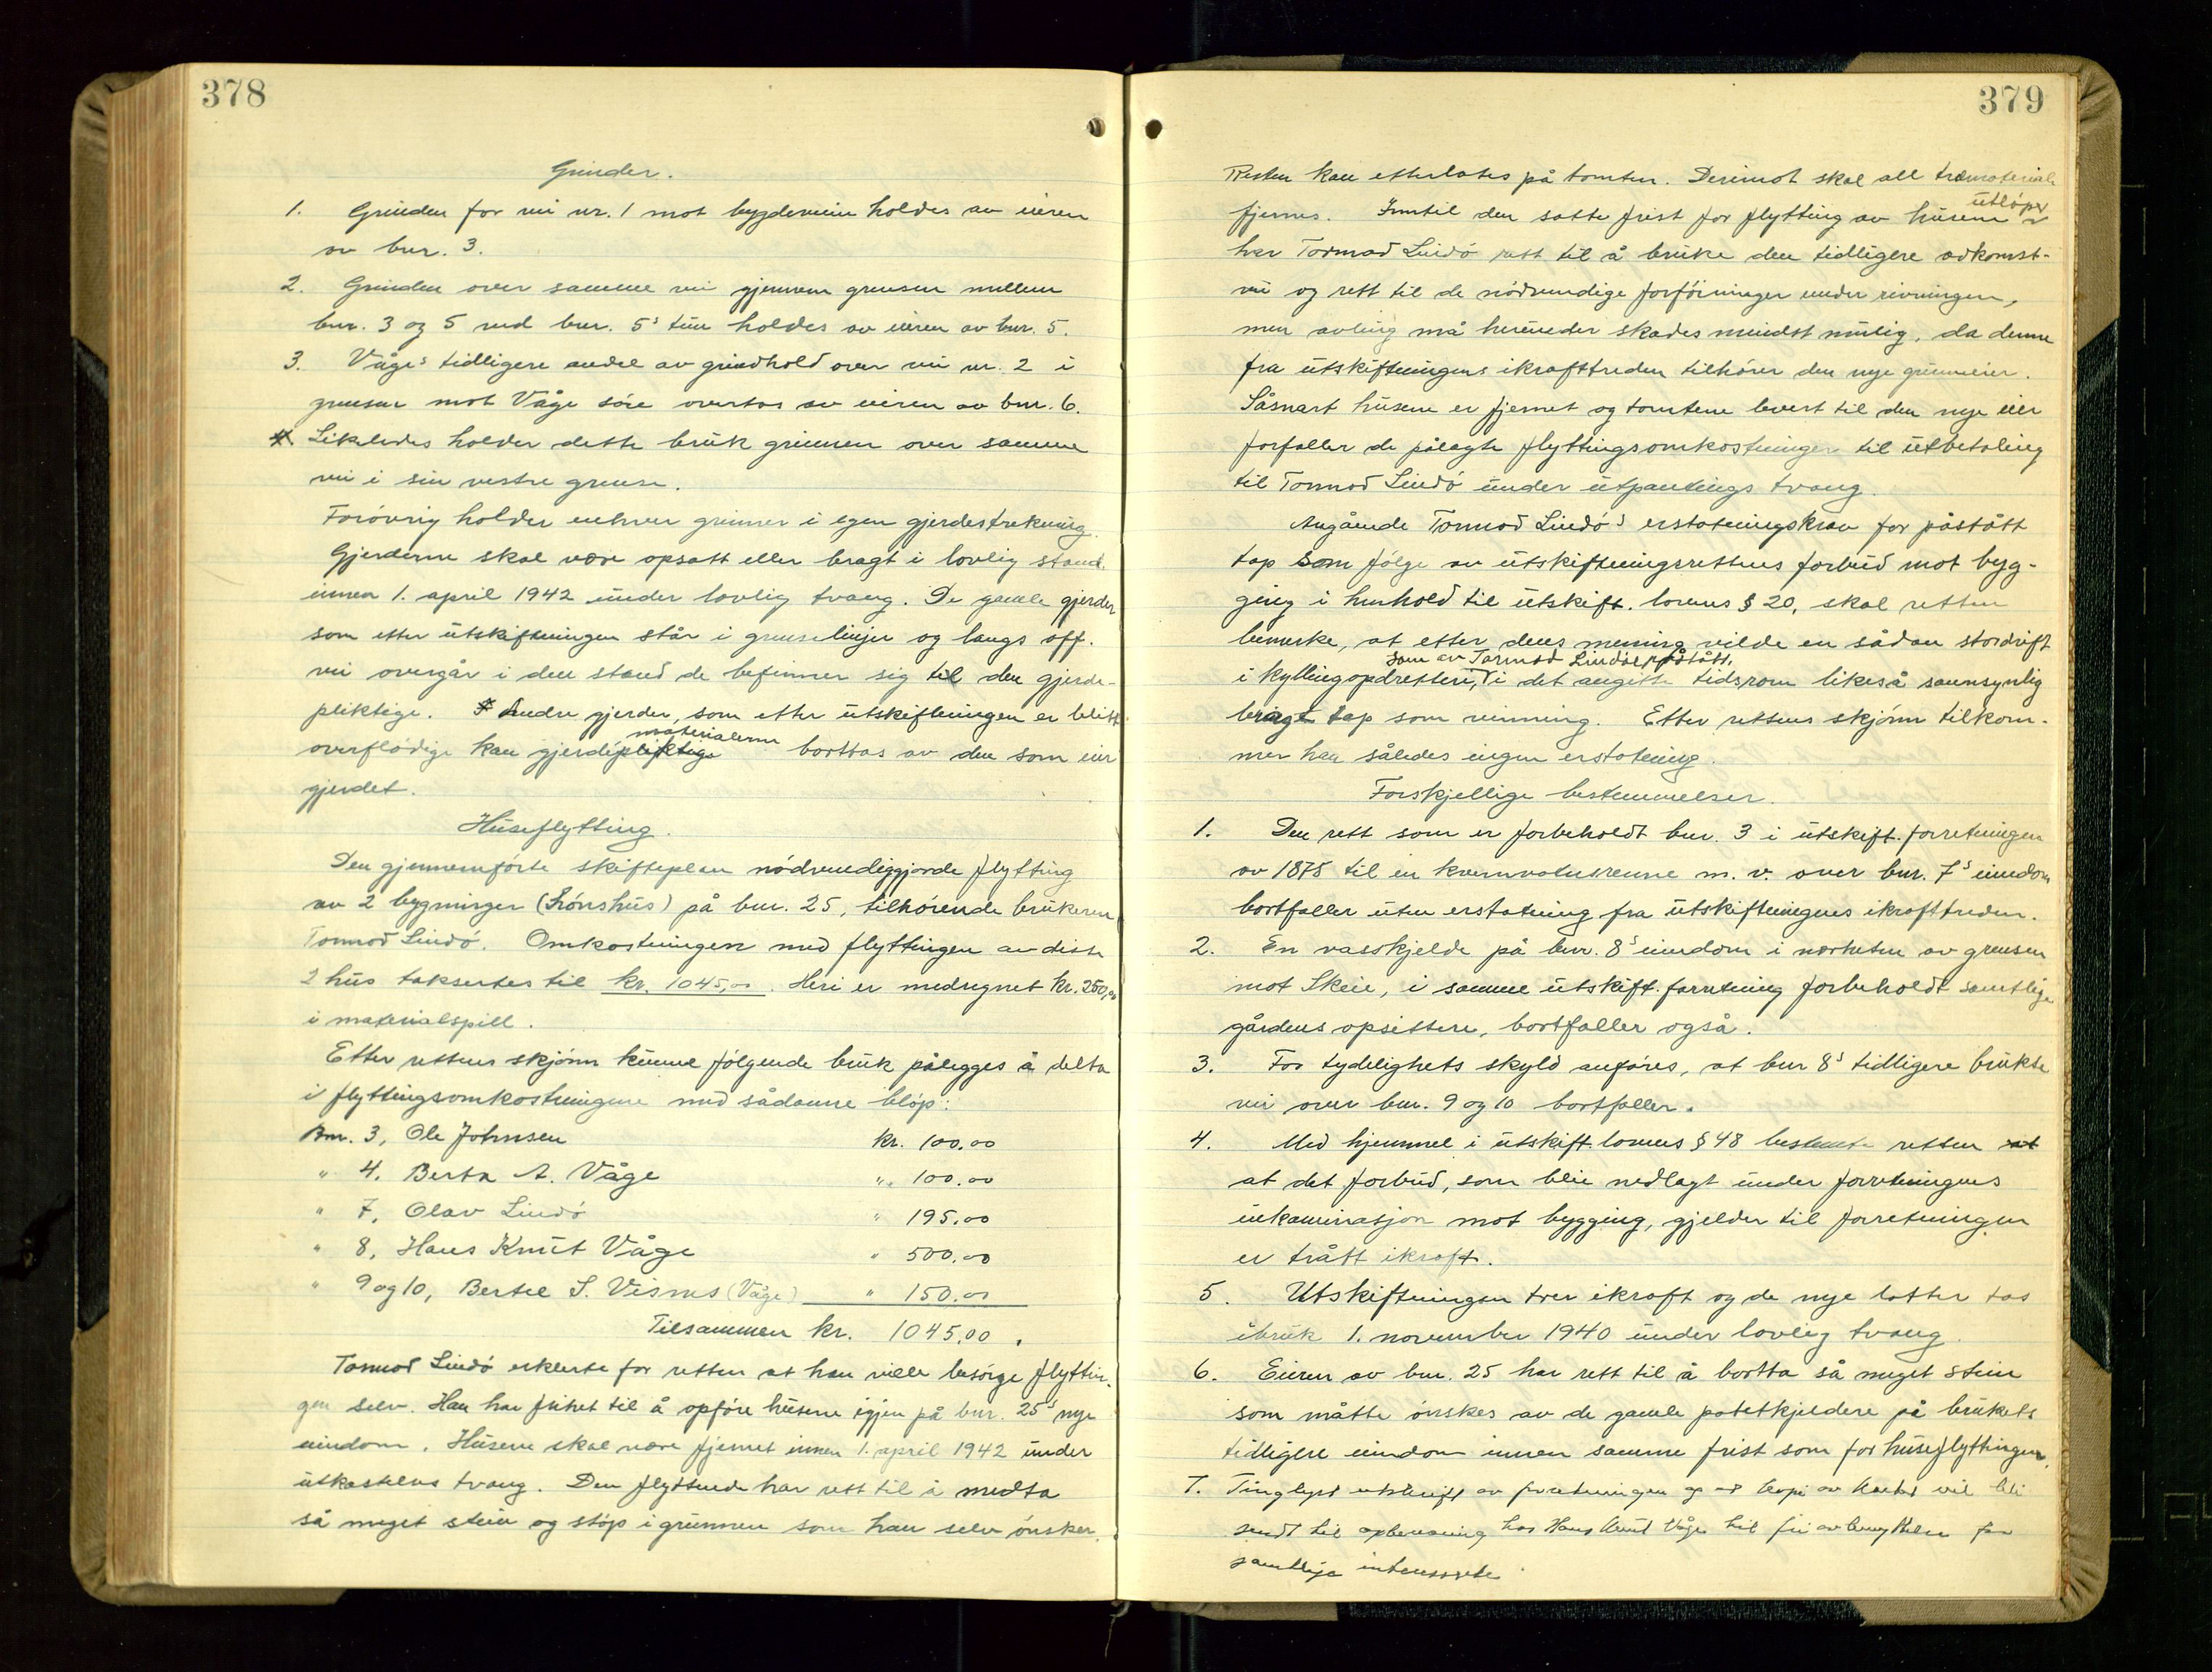 378
Grinder.
1. Grinden for vei nr. 1 mot bygdeveien holdes av eieren
av bnr. 3.
2. Grinden over samme vei gjennem grensen mellem
bnr. 3 og 5 ved bnr. 5's tun holdes av eieren av bnr. 5.
3. Våge's tidligere andel av grindhold over vei nr. 2 i
grensen mot Våge søre overtas av eieren av bnr. 6.
Likeledes holder dette bruk grinnen over samme
vei i sin vestre grense.
Forøvrig holder enhver grinner i egen gjerdestrekning.
Gjerderne skal være opsatt eller bragt i lovlig stand
innen 1. april 1942 under lovlig tvang. De gamle gjerder
som etter utskiftningen står i grenselinjer og langs off.
vei overgår i den stand de befinner sig til den gjerde-
pliktige. Andre gjerder, som etter utskiftningen er blitt
overflødige kan gjerdepliktige materialerne borttas av den som eier
gjerdet.
Huseflytting.
Den gjennemførte skifteplan nødvendiggjorde flytting
av 2 bygninger (hønshus) på bnr. 25, tilhørende brukeren
Tormod Lindø. Omkostningen med flyttingen av disse
2 hus taksertes til kr. 1045,00. Heri er medregnet kr. 250,00
i materialspill.
Etter rettens skjønn kunne følgende bruk pålegges å delta
i flyttingsomkostningene med sådanne beløp:
Bnr. 3, Ole Johnsen kr. 100.00
" 4. Berta A. Våge " 100.00
" 7, Olav Lindø " 195.00
" 8, Hans Knut Våge " 500.00
" 9 og 10, Bertel S. Visnes (Våge) " 150.00
Tilsammen kr. 1045,00.
Tormod Lindø erklerte for retten at han ville besørge flyttin-
gen selv. Han har frihet til å opføre husene igjen på bnr. 25's nye
eiendom. Husene skal være fjernet innen 1. april 1942 under
utkastelses tvang. Den flyttende har rett til å medta
så meget stein og støp i grunnen som han selv ønsker.
379
Resten kan etterlates på tomten. Derimot skal all trematerial
fjernes. Inntil den satte frist for flytting av husene utløper
har Tormod Lindø rett til å bruke den tidligere adkomst-
vei og rett til de nødvendige forføininger under rivningen,
men avling må herunder skades mindst mulig, da denne
fra utskiftningens ikrafttreden tilhører den nye grunneier.
Såsnart husene er fjernet og tomtene levert til den nye eier
forfaller de pålagte flyttingsomkostninger til utbetaling
til Tormod Lindø under utpantings tvang.
Angående Tormod Lindø's erstatningskrav for påstått
tap som følge av utskiftningsrettens forbud mot byg-
ging i henhold til utskift. lovens § 20, skal retten
bemerke, at etter dens mening vilde en sådan stordrift
som av Tormod Lindø påstått,
i kyllingopdretteri, i det angitte tidsrom likeså sannsynlig
bragt tap som vinning. Etter rettens skjønn tilkom-
mer han således ingen erstatning.
Forskjellige bestemmelser.
1. Den rett som er forbeholdt bnr. 3 i utskift. forretningen
av 1875 til en kvernvatnsrenne m. v. over bnr. 7's eiendom
bortfaller uten erstatning fra utskiftningens ikrafttreden.
2. En vasskjelde på bnr. 8's eiendom i nærheten av grensen
mot Skeie, i samme utskift. forretning forbeholdt samtlige
gårdens opsittere, bortfaller også.
3. For tydelighets skyld anføres, at bnr 8's tidligere brukte
vei over bnr. 9 og 10 bortfaller.
4. Med hjemmel i utskift. lovens § 48 bestemte retten at
at det forbud, som blev nedlagt under forretningens
inkaminasjon mot bygging, gjelder til forretningen
er trått ikraft.
5. Utskiftningen trer ikraft og de nye lotter tas
ibruk 1. november 1940 under lovlig tvang.
6. Eieren av bnr. 25 har rett til å bortta så meget stein
som måtte ønskes av de gamle potetkjeldere på brukets
tidligere eiendom innen samme frist som for huseflyttingen.
7. Tinglyst utskrift av forretningen og kopi av kartet vil bli
sendt til opbevaring hos Hans Knut Våge til fri avbenyttelse for
samtlige interesserte.